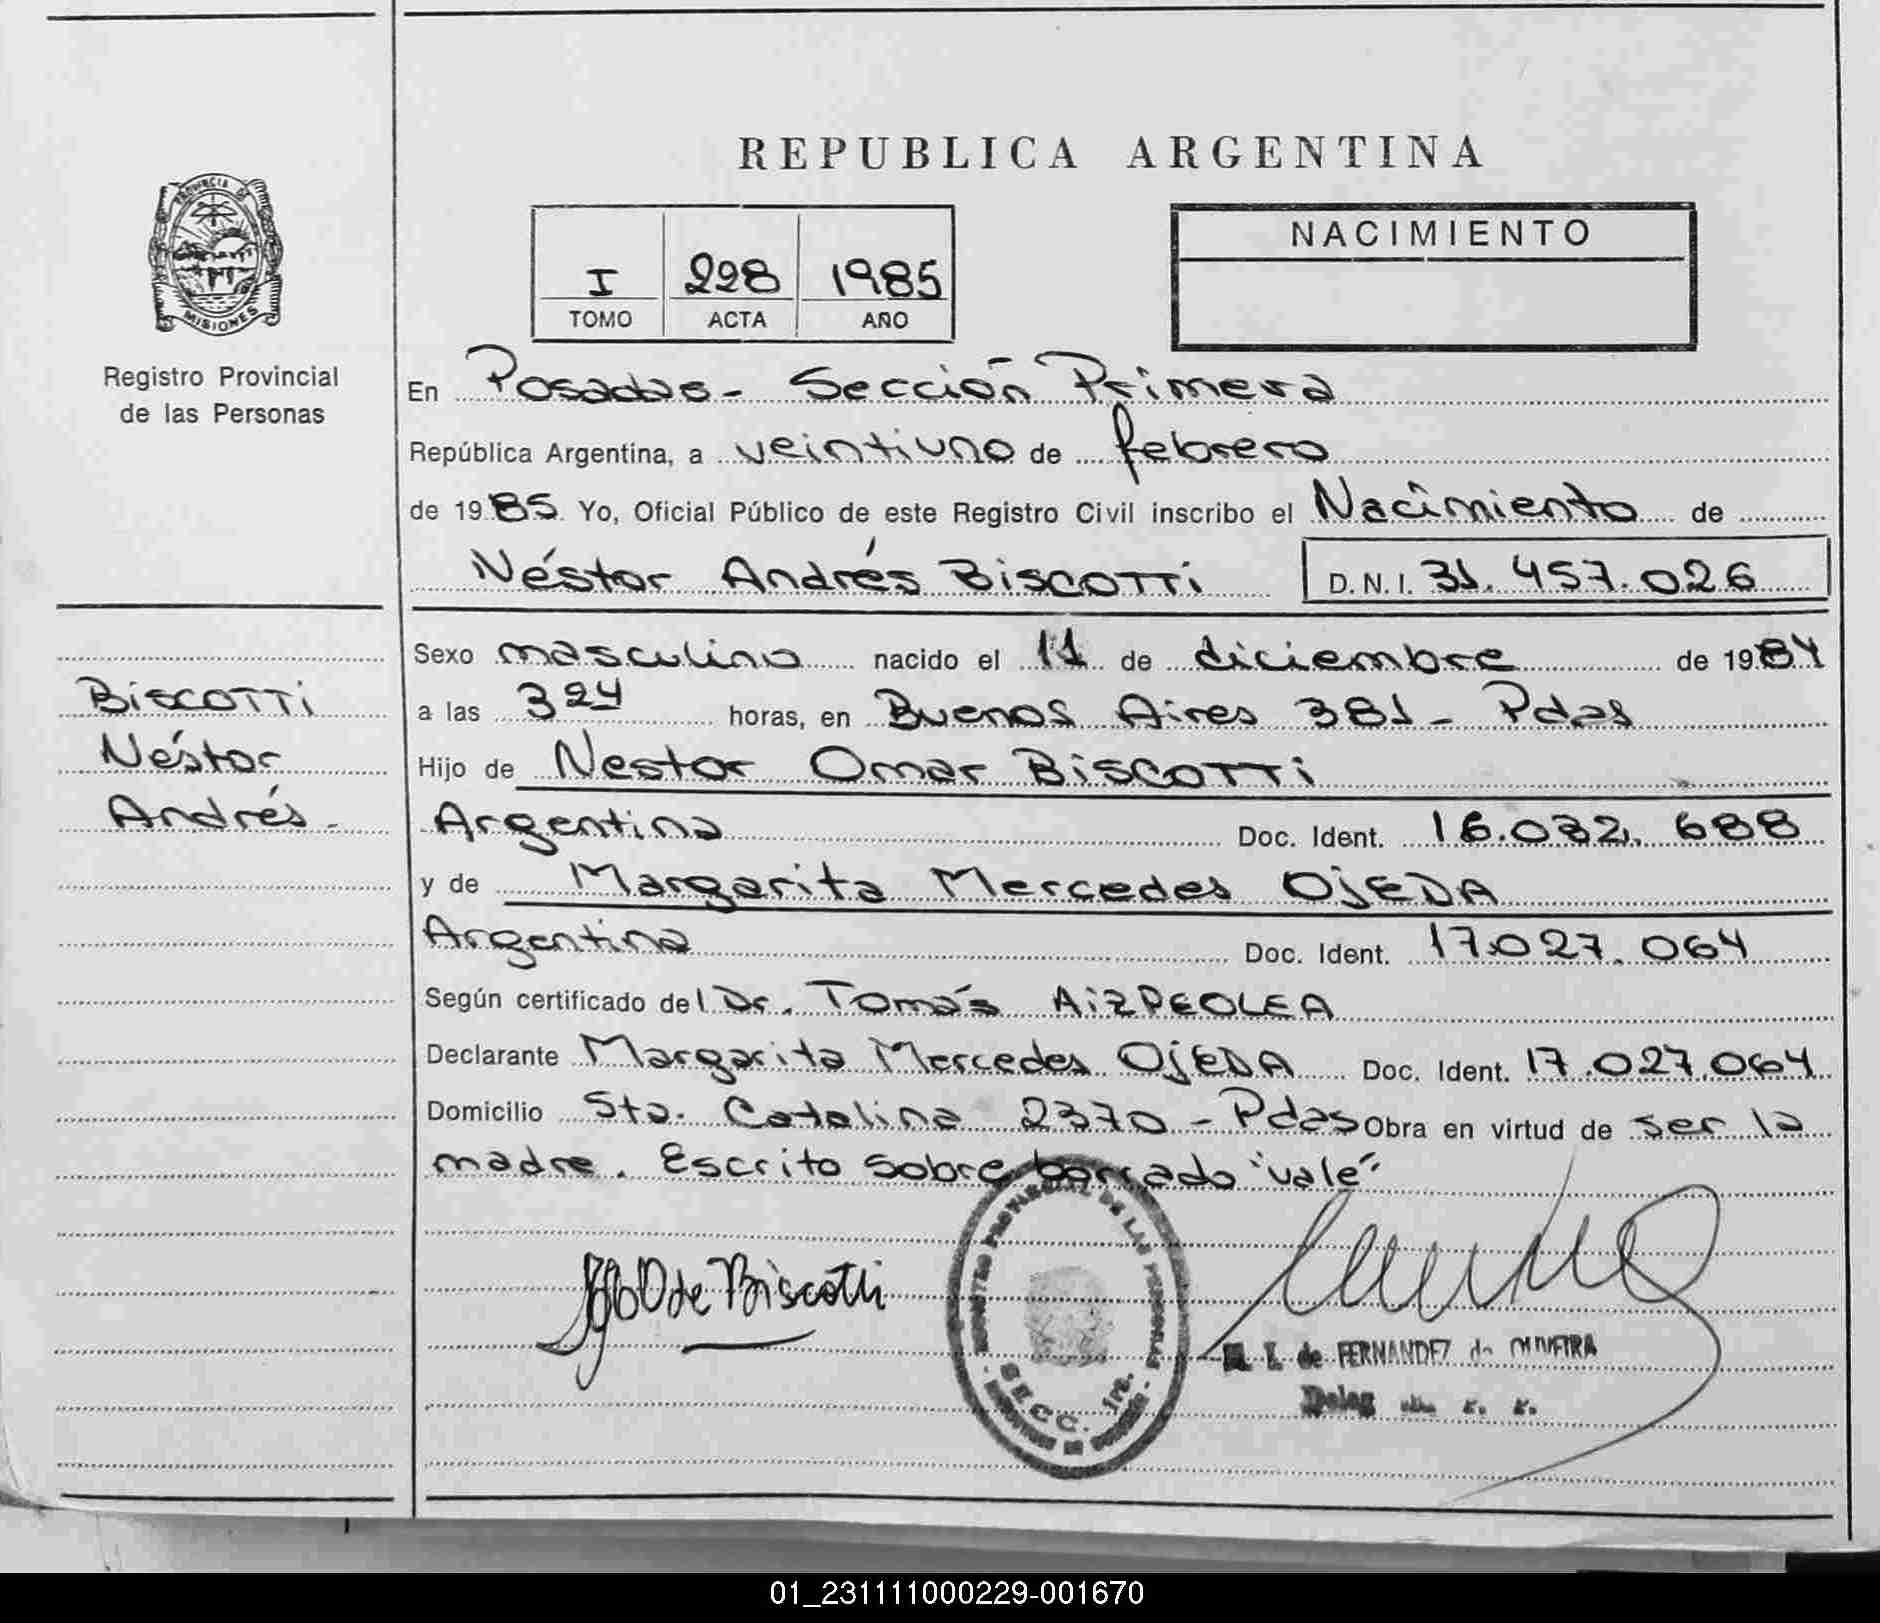 REPUBLICA ARGENTINA
PROVINCIA DE
MISIONES
Registro Provincial
de las Personas
I 228 1985
TOMO ACTA AÑO
NACIMIENTO
En Posadas - Sección Primera
República Argentina, a veintiuno de febrero
de 1985 Yo, Oficial Público de este Registro Civil inscribo el Nacimiento de
Néstor Andrés BISCOTTI D.N.I. 31.457.026
Biscotti
Néstor
Andrés.
Sexo masculino nacido el 11 de diciembre de 1984
a las 3 24 horas, en Buenos Aires 381 - Pdas
Hijo de Nestor Omar BISCOTTI
Argentino Doc. Ident. 16.032.688
y de Margarita Mercedes OJEDA
Argentina Doc. Ident. 17.027.064
Según certificado del Dr. Tomás AIZPEOLEA
Declarante Margarita Mercedes OJEDA Doc. Ident. 17.027.064
Domicilio Sta. Catalina 2370 - Pdas Obra en virtud de ser la
madre. Escrito sobre borrado "vale"
de Biscotti
REGISTRO PROVINCIAL DE LAS PERSONAS
SECC. 1ra.
de FERNANDEZ
01_231111000229-001670